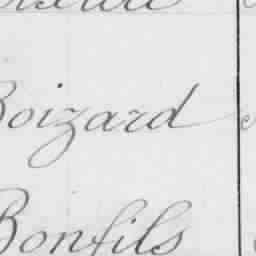 Boizard
Bonfils